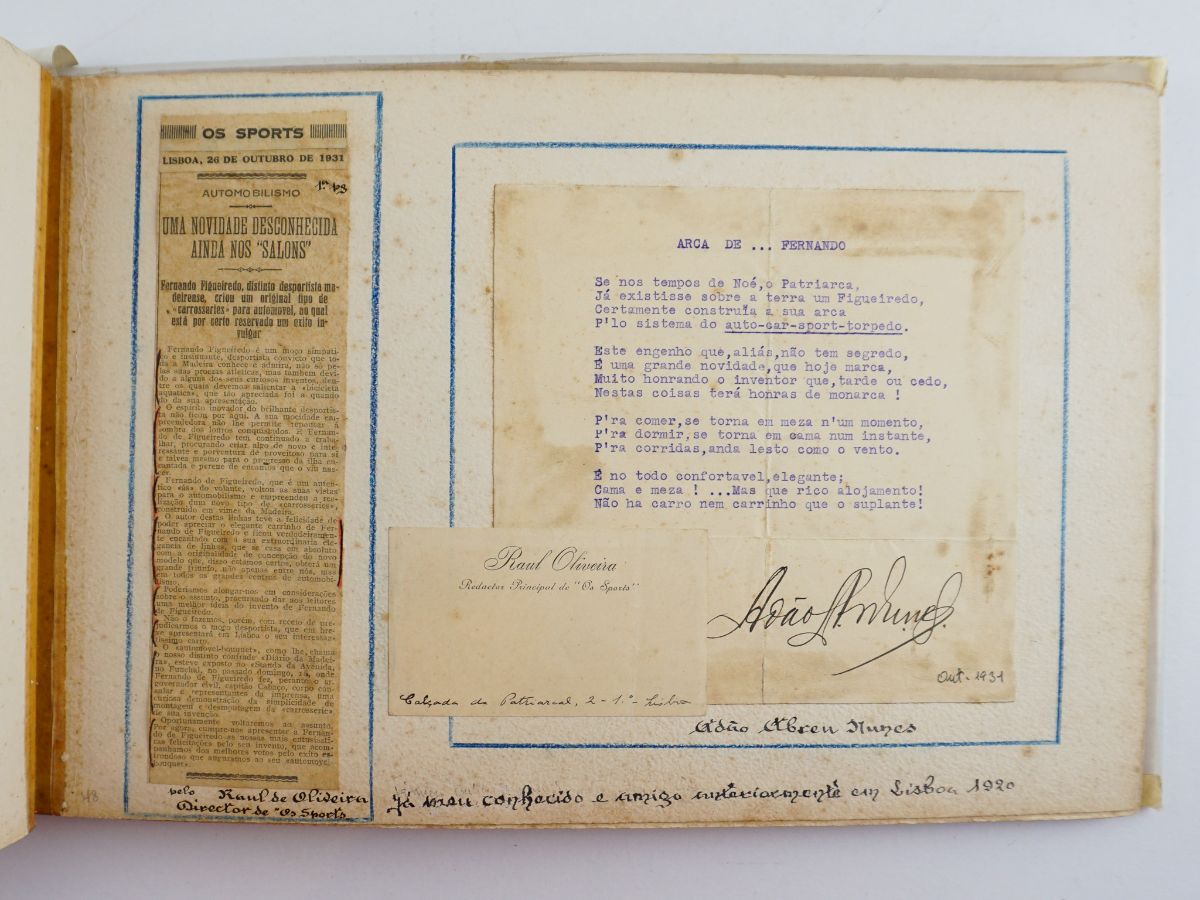 OS SPORTS
LISBOA, 26 DE OUTUBRO DE 1931
AUTOMOBILISMO
UMA NOVIDADE DESCONHECIDA
AINDA NOS "SALONS"
Fernando Figueiredo, distinto desportista ma-
deirense, criou um original tipo de
«carrosseries» para automovel, ao qual
está por certo reservado um exito in-
vulgar
Fernando Figueiredo é um moço simpati-
co e insinuante, desportista convicto que to-
da a Madeira conhece e admira, não só pe-
las suas proezas atleticas, mas tambem devi-
do a alguns dos seus curiosos inventos, den-
tre os quais devemos salientar a «bicicleta
aquatica», que tão apreciada foi a quan-
do da sua apresentação.
O espirito inovador do brilhante desportis-
ta não ficou por aqui. A sua mocidade em-
preendedora não lhe permite repousar á
sombra dos louros conquistados. E Fernan-
do de Figueiredo tem continuado a traba-
lhar, procurando criar algo de novo e inte-
ressante e porventura de proveitoso para si
e talvez mesmo para o progresso da ilha en-
cantada e perene de encantos que o viu nas-
cer.
Fernando de Figueiredo, que é um auten-
tico «ás» do volante, voltou as suas vistas
para o automobilismo e empreendeu a rea-
lização dum novo tipo de «carrosseries»,
construido em vimes da Madeira.
O autor destas linhas teve a felicidade de
poder apreciar o elegante carrinho de Fer-
nando de Figueiredo e ficou verdadeiramen-
te encantado com a sua extraordinaria ele-
gancia de linhas, que se casa em absoluto
com a originalidade de concepção do novo
modelo que, disso estamos certos, obterá um
grande triunfo, não apenas entre nós, mas
em todos os grandes centros de automobi-
lismo.
Poderiamos alongar-nos em considerações
sobre o assunto, procurando dar aos leitores
uma melhor ideia do invento de Fernando
de Figueiredo.
Não o fazemos, porém, com receio de pre-
judicarmos o moço desportista, que em bre-
ve apresentará em Lisboa o seu interessan-
tissimo carro.
O «automovel-bouquet», como lhe chama
o nosso distinto confrade «Diário da Madei-
ra», esteve exposto no «Stand» da Avenida,
no Funchal, no passado domingo, 18, onde
Fernando de Figueiredo fez, perante o sr.
governador civil, capitão Cabaço, corpo con-
sular e representantes da imprensa, uma
curiosa demonstração da simplicidade de
montagem e desmontagem da «carrosserie»
de sua invenção.
Oportunamente voltaremos ao assunto.
Por agora, cumpre-nos apresentar a Fernan-
do de Figueiredo as nossas mais entusiasti-
cas felicitações pelo seu invento, que acom-
panhamos dos melhores votos pelo exito es-
trondoso que auguramos ao seu «automovel-
bouquet».
pelo Raul de Oliveira
Director de "Os Sports"
ARCA DE ... FERNANDO
Se nos tempos de Noé,o Patriarca,
Já existisse sobre a terra um Figueiredo,
Certamente construía a sua arca
P'lo sistema do auto-car-sport-torpedo.
Este engenho que,aliás,não tem segredo,
É uma grande novidade,que hoje marca,
Muito honrando o inventor que,tarde ou cedo,
Nestas coisas terá honras de monarca !
P'ra comer,se torna em meza n'um momento,
P'ra dormir,se torna em cama num instante,
P'ra corridas,anda lesto como o vento.
É no todo confortavel,elegante;
Cama e meza ! ...Mas que rico alojamento!
Não ha carro nem carrinho que o suplante!
Raul Oliveira
Redactor Principal de "Os Sports"
Calçada da Patriarcal, 2-1º-Lisboa
Adão A. Nunes.
Out-1931
Adão Abreu Nunes
Já meu conhecido e amigo anteriormente em Lisboa 1920